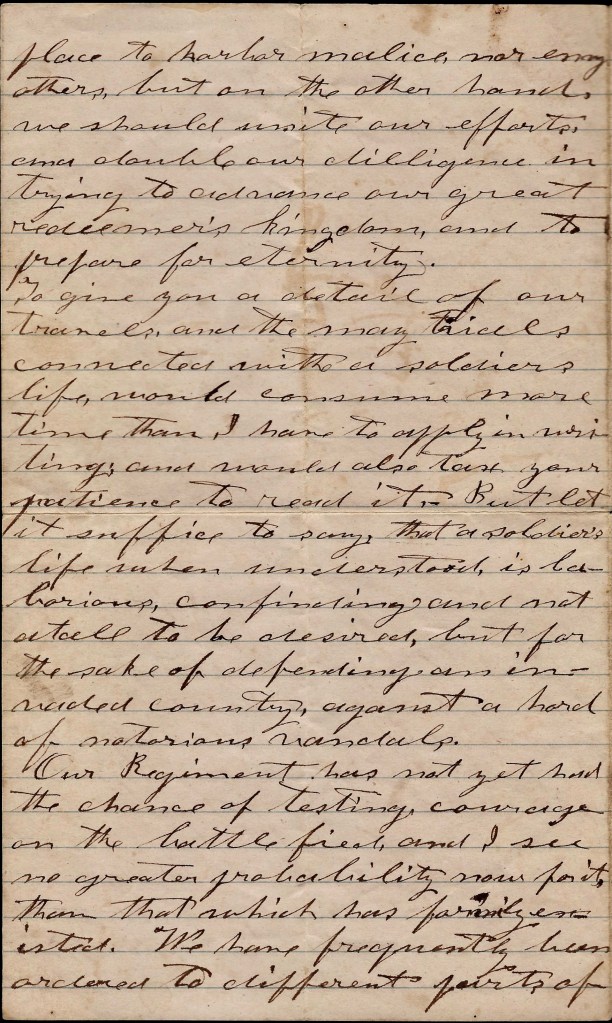 place to harbor malice, nor envy
others, but on the other hand,
we should unite our efforts,
and double our dilligence in
trying to advance our great
redeemer's kingdom, and to
prepare for eternity.
To give you a detail of our
travels, and the may trials
connected with a soldiers
life, would consume more
time than, I have to apply in wri-
ting; and would also tax your
patience to read it. But let
it suffice to say, that a soldier's
life when understood, is la-
borious, confinding and not
atall to be desired, but for
the sake of defending an in-
vaded country, against a hord
of notorious vandals.
Our Regiment has not yet had
the chance of testing, courage
on the battle fied, and I see
no greater probability now for it,
than that which has formily ex-
isted. We have frequently been
ordered to different parts of